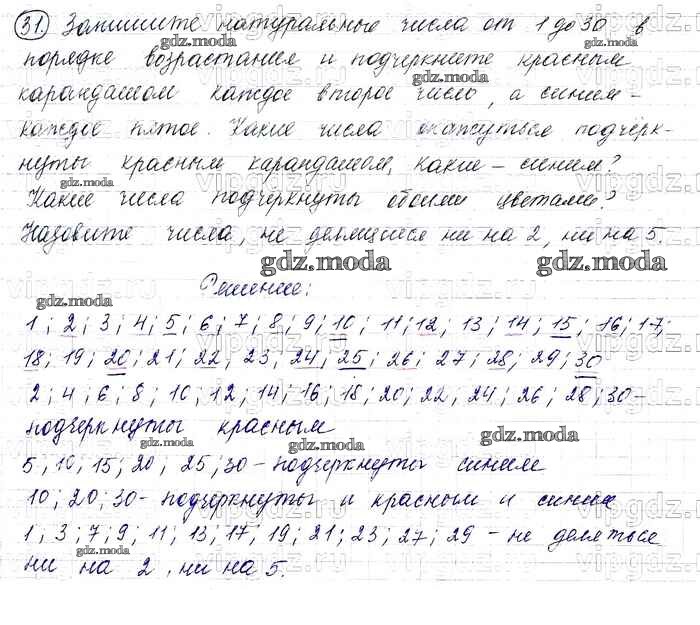 31. Запишите натуральные числа от 1 до 30 в
порядке возрастания и подчеркните красным
карандашом каждое второе число, а синим –
каждое пятое. Какие числа окажуться подчёрк-
нуты красным карандашом, какие – синим?
Какие числа подчёркнуты обоими цветами?
Назовите числа, не делящиеся ни на 2, ни на 5.
Решение:
1; 2; 3; 4; 5; 6; 7; 8; 9; 10; 11; 12; 13; 14; 15; 16; 17;
18; 19; 20; 21; 22, 23; 24, 25; 26; 27; 28; 29; 30
2; 4; 6; 8; 10; 12; 14; 16; 18; 20; 22, 24; 26; 28; 30–
подчеркнуты красным
5; 10; 15; 20; 25; 30 – подчеркнуты синим
10; 20; 30 – подчеркнуты и красным и синим
1; 3; 7; 9; 11; 13; 17; 19; 21; 23; 27; 29 – не деляться
ни на 2, ни на 5.
gdz.moda
vipgdz.ru